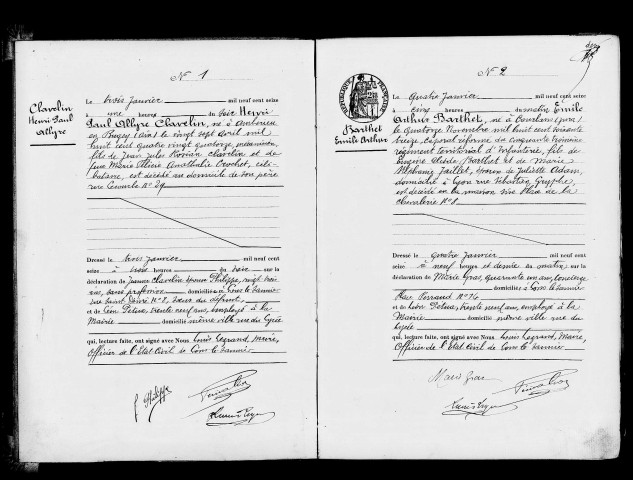 N° 1
Clavelin
Henri Paul
Allyre
Le trois janvier mil neuf cent seize
à une heures du soir Henri
Paul Allyre Clavelin, né à Ambérieu
en Bugey (Ain) le vingt sept avril mil
huit cent quatre vingt quatorze, mécanicien,
fils de Jean Jules Rovian Clavelin et de
feue Marie Marie Anathalie Crochet, céli-
bataire, est décédé au domicile de son père
rue N° 29
Dressé le trois janvier mil neuf cent
seize à trois heures du soir sur la
déclaration de Jeanne Clavelin épouse Philippe, vingt trois
ans, sans profession domiciliée à Lons le Saunier
rue Saint Désiré N° 8, sœur du défunt,
et de Léon Petua, trente neuf ans, employé à la
Mairie domicilié même ville rue du Lycée
qui, lecture faite, ont signé avec Nous Louis Legrand, maire,
Officier de l'État Civil de Lons le Saunier
J. Philippe
N° 2
RÉPUBLIQUE FRANÇAISE
Barthet
Emile Arthur
Le Quatre janvier mil neuf cent seize
à cinq heures du matin Emile
Arthur Barthet, né à Courlans (Jura)
le quatorze Novembre mil huit cent soixante
treize, caporal réformé du cinquante troisième
régiment territorial d'Infanterie, fils de
Eugène Barthet et de Marie
Stéphanie Jaillet, époux de Juliette Adam,
domicilié à Lyon rue Sébastien Gryphe,
est décédé en la maison sise Place de la
chevalerie N° 8
Dressé le quatre janvier mil neuf cent
seize à neuf heures et demie du matin, sur la
déclaration de Marie Gras, quarante un ans, concierge
domiciliée à Lons le Saunier
Place Perraud N° 16
et de Léon Petua, trente neuf ans, employé à la
Mairie domicilié même ville rue du
Lycée
qui, lecture faite, ont signé avec Nous Louis Legrand, Maire,
Officier de l'État Civil de Lons le Saunier
Marie Gras